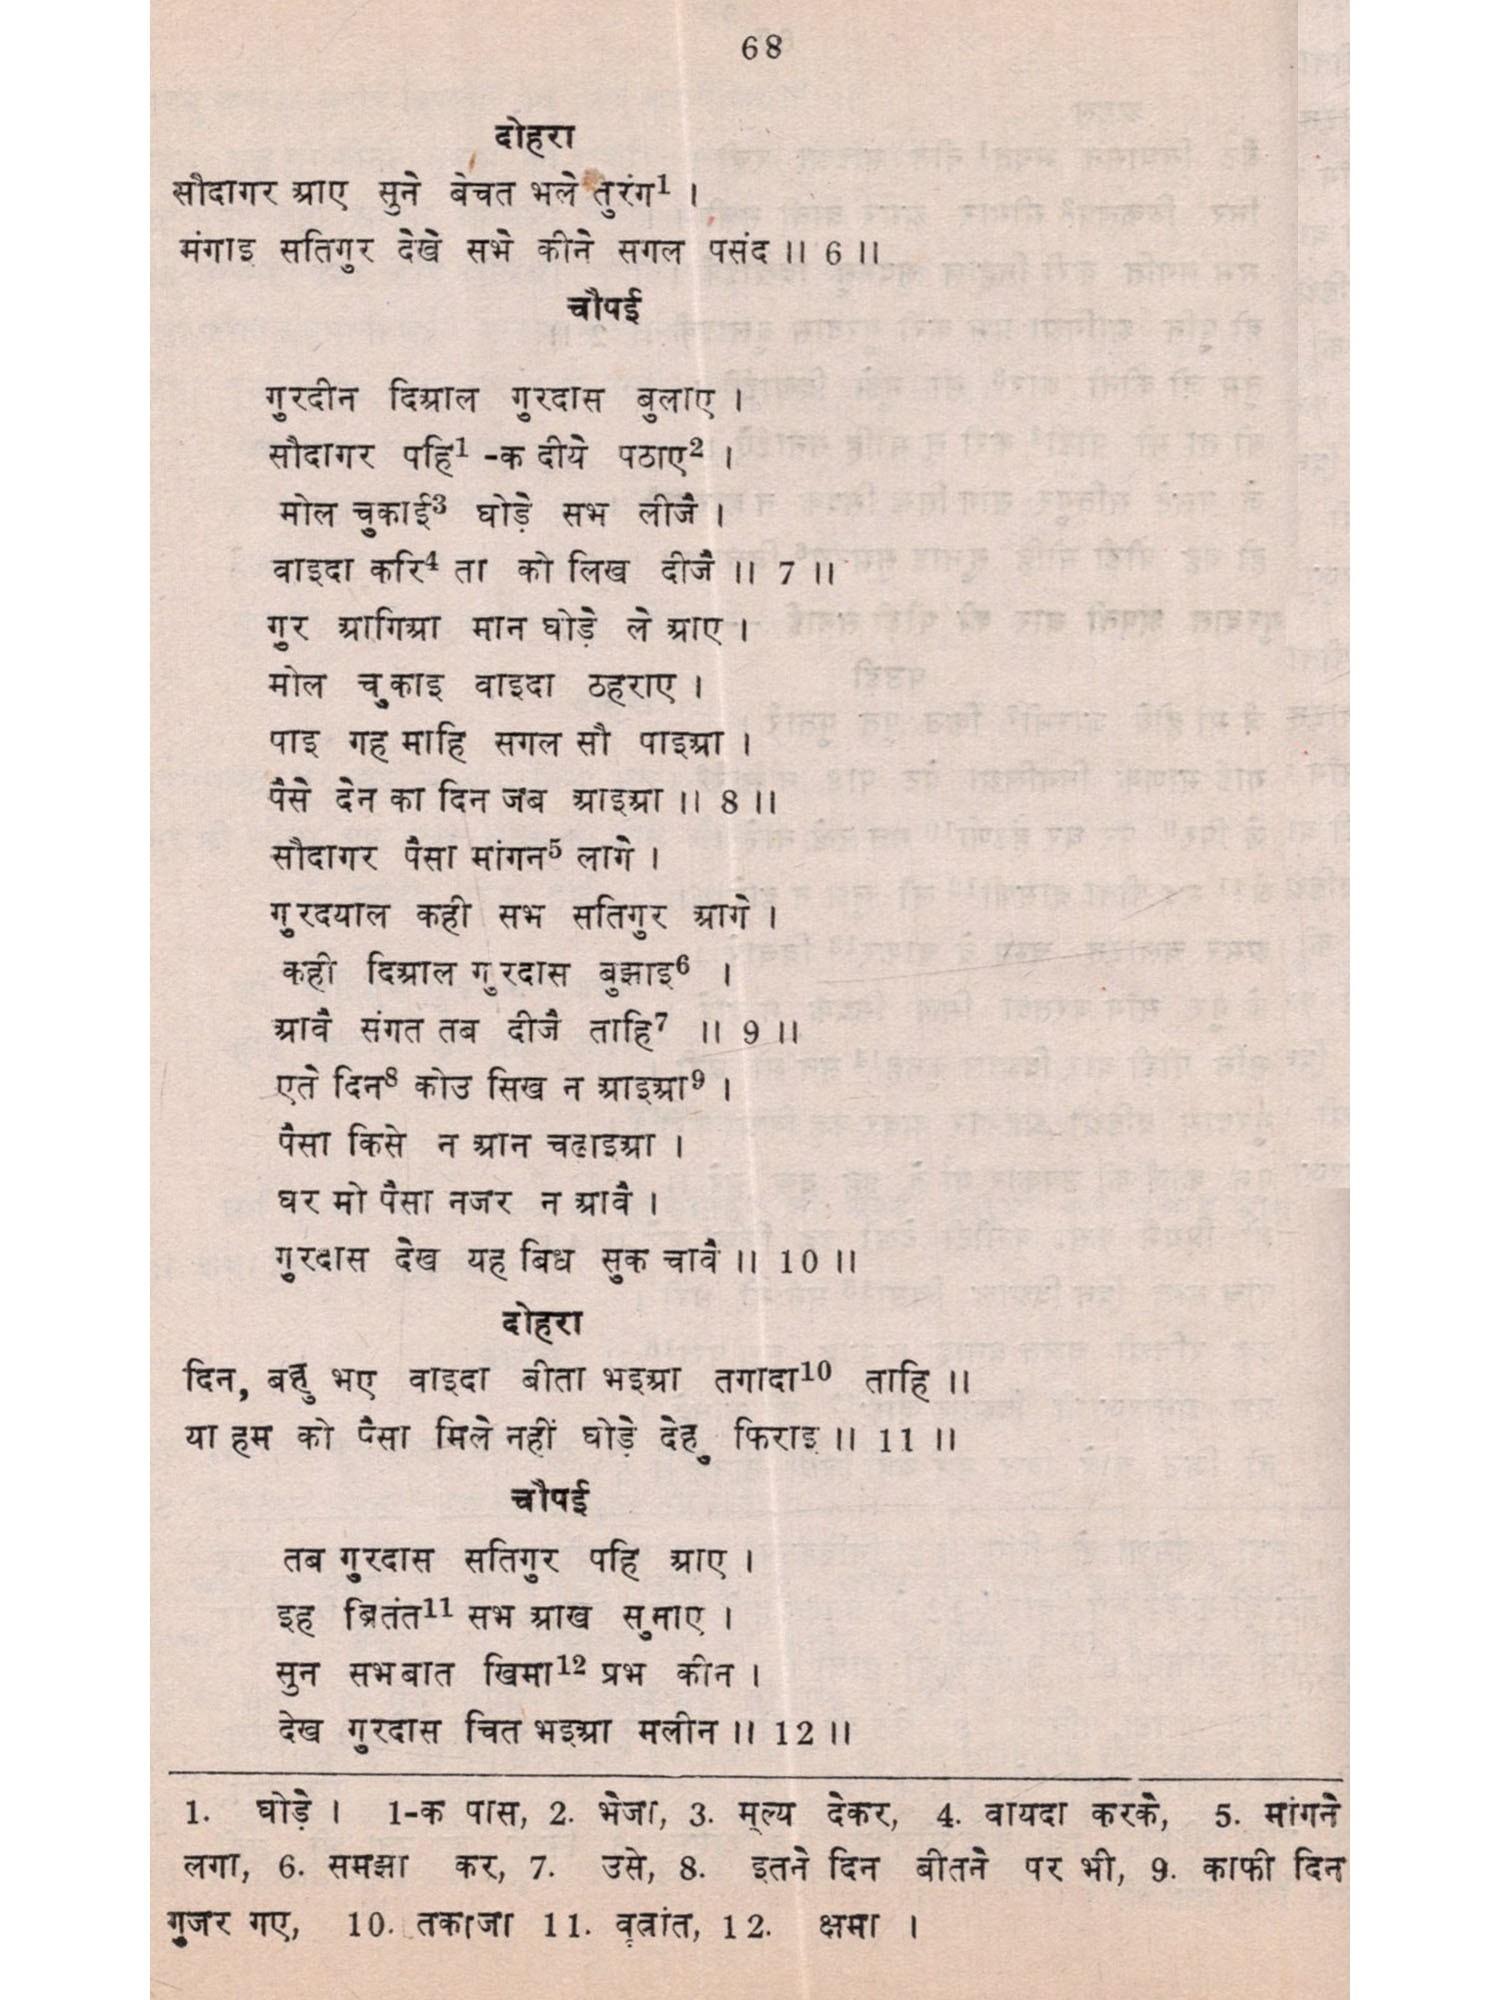 68
दोहरा
सौदागर आए सुने बेचत भले तुरंग¹ ।
मंगाइ सतिगुर देखे सभे कीने सगल पसंद ।। 6 ।।
चौपई
गुरदीन दिआल गुरदास बुलाए ।
सौदागर पहि¹ -क दीये पठाए² ।
मोल चुकाई³ घोड़े सभ लीजै ।
वाइदा करि⁴ ता को लिख दीजै ।। 7 ।।
गुर आगिआ मान घोड़े ले आए ।
मोल चुकाइ वाइदा ठहराए ।
पाइ गह माहि सगल सौ पाइआ ।
पैसे देन का दिन जब आइआ ।। 8 ।।
सौदागर पैसा मांगन⁵ लागे ।
गुरदयाल कही सभ सतिगुर आगे ।
कही दिआल गुरदास बुझाइ⁶ ।
आवै संगत तब दीजै ताहि⁷ ।। 9 ।।
एते दिन⁸ कोउ सिख न आइआ⁹ ।
पैसा किसे न आन चढाइआ ।
घर मो पैसा नजर न आवै ।
गुरदास देख यह बिध सुक चावै ।। 10 ।।
दोहरा
दिन, बहु भए वाइदा बीता भइआ तगादा¹⁰ ताहि ।।
या हम को पैसा मिले नहीं घोड़े देहु फिराइ ।। 11 ।।
चौपई
तब गुरदास सतिगुर पहि आए ।
इह ब्रितंत¹¹ सभ आख सुमाए ।
सुन सभ बात खिमा¹² प्रभ कीन ।
देख गुरदास चित भइआ मलीन ।। 12 ।।
1. घोड़े । 1-क पास, 2. भेजा, 3. मूल्य देकर, 4. वायदा करके, 5. मांगने
लगा, 6. समझा कर, 7. उसे, 8. इतने दिन बीतने पर भी, 9. काफी दिन
गुजर गए, 10. तकाजा 11. वृत्रांत, 12. क्षमा ।